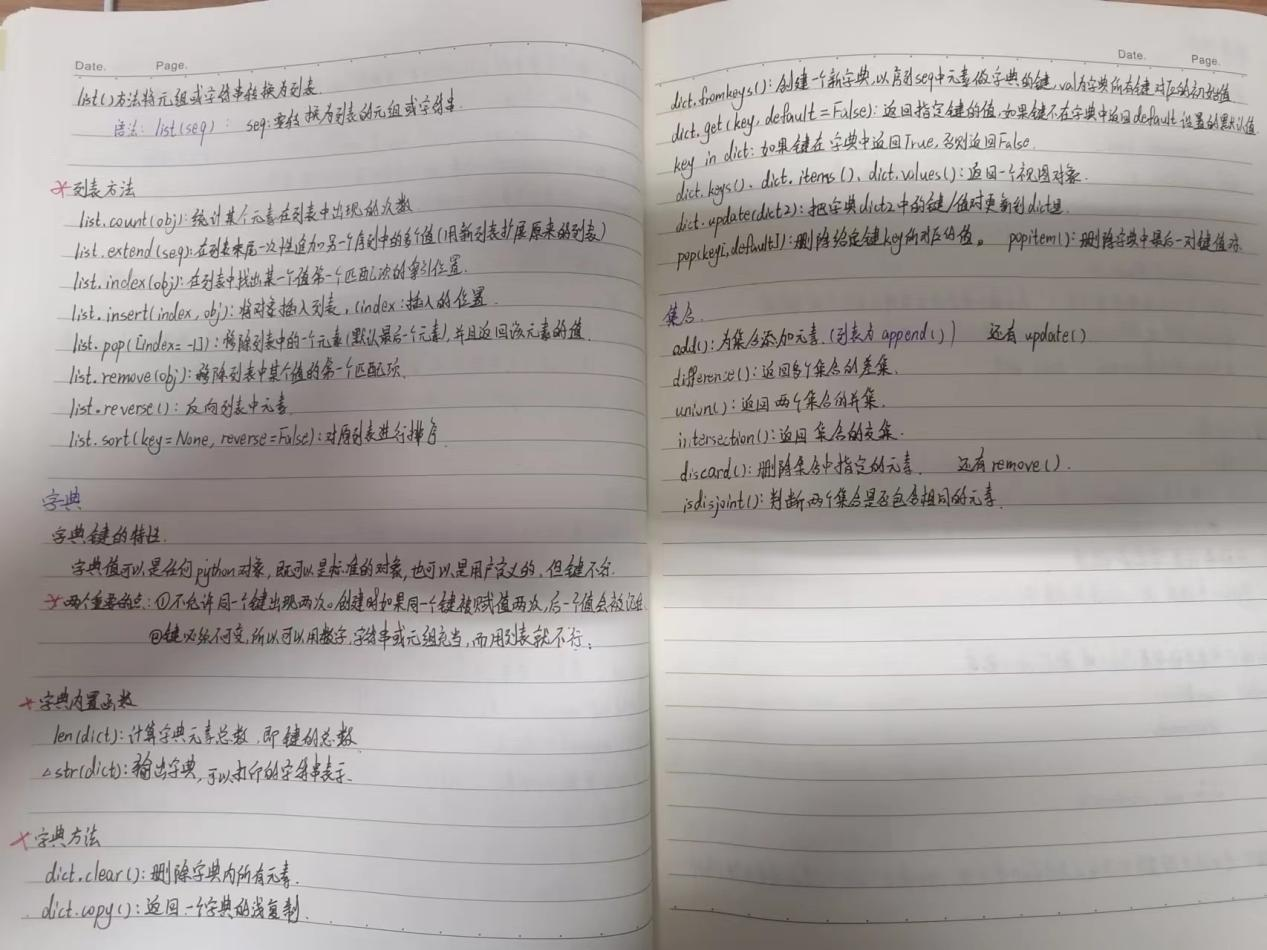 Date. Page.
list()方法将元组或字符串转换为列表.
语法: list(seq): seq:要转换为列表的元组或字符串.
*列表方法
list.count(obj): 统计某个元素在列表中出现的次数
list.extend(seq): 在列表末尾一次性追加另一个序列中的多个值(用新列表扩展原来的列表)
list.index(obj): 在列表中找出某一个值第一个匹配项的索引位置.
list.insert(index, obj): 将对象插入列表, index:插入的位置.
list.pop([index=-1]): 移除列表中的一个元素(默认最后一个元素),并且返回该元素的值.
list.remove(obj): 移除列表中某个值的第一个匹配项.
list.reverse(): 反向列表中元素.
list.sort(key=None, reverse=False): 对原列表进行排序
字典
字典键的特性.
字典值可以是任何python对象,既可以是标准的对象,也可以是用户定义的,但键不行.
*两个重要的点: ①不允许同一个键出现两次。创建时如果同一个键被赋值两次,后一个值会被记住
②键必须不可变,所以可以用数字,字符串或元组充当,而用列表就不行;
*字典内置函数
len(dict): 计算字典元素总数,即键的总数.
△str(dict): 输出字典,可以打印的字符串表示.
*字典方法
dict.clear(): 删除字典内所有元素.
dict.copy(): 返回一个字典的浅复制.
Date. Page.
dict.fromkeys(): 创建一个新字典,以序列seq中元素做字典的键,val为字典所有键对应的初始值.
dict.get(key, default=False): 返回指定键的值,如果键不在字典中返回default设置的默认值
key in dict: 如果键在字典中返回True,否则返回False.
dict.keys()、dict.items()、dict.values(): 返回一个视图对象.
dict.update(dict2): 把字典dict2中的键/值对更新到dict里.
pop(key[,default]): 删除给定键key所对应的值。 popitem(): 删除字典中最后一对键值对.
集合.
add(): 为集合添加元素.(列表为append()) 还有update()
difference(): 返回多个集合的差集.
union(): 返回两个集合的并集.
intersection(): 返回集合的交集.
discard(): 删除集合中指定的元素. 还有remove().
isdisjoint(): 判断两个集合是否包含相同的元素.